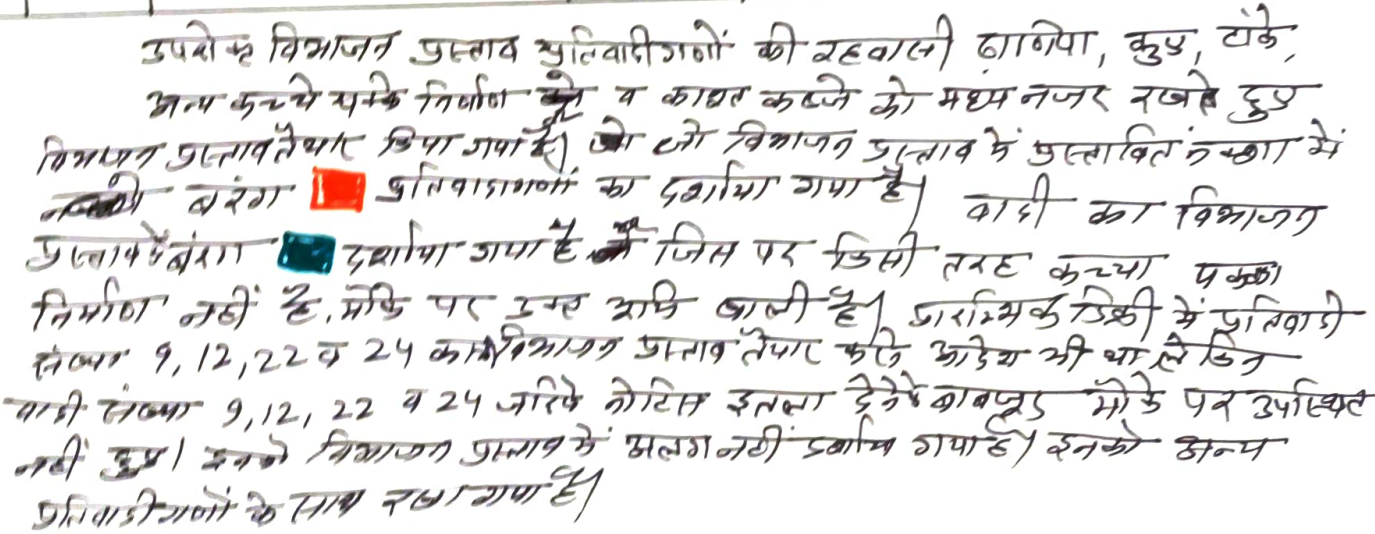 उपरोक्त विभाजन प्रस्ताव प्रतिवादीगणों की रहवासी ढाणिया, कुए, टांके,
अन्य कच्चे पक्के निर्माण व काश्त कब्जे को मध्य नजर रखते हुए
विभाजन प्रस्ताव तैयार किया गया है। जो विभाजन प्रस्ताव में प्रस्तावित नक्शा में
बरंग प्रतिवादीगणों का दर्शाया गया है। वादी का विभाजन
प्रस्ताव में बरंग दर्शाया गया है जिस पर किसी तरह कच्चा पक्का
निर्माण नहीं है, मौके पर उक्त भूमि खाली है। प्रारम्भिक डिक्री में प्रतिवादी
संख्या 9, 12, 22 व 24 का विभाजन प्रस्ताव तैयार आदेश भी था लेकिन
वादी संख्या 9, 12, 22 व 24 जरिये नोटिस इतला देने के बावजूद मौके पर उपस्थित
नहीं हुए। इनको विभाजन प्रस्ताव में अलग नहीं दर्शाया गया है। इनको अन्य
प्रतिवादीगणों के साथ रखा गया है।